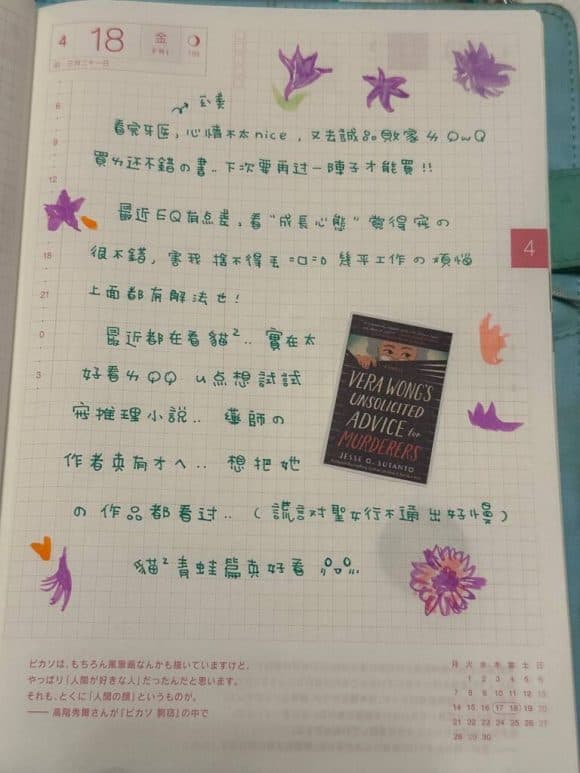 4 18 金
三月二十一日
公美
看完牙医，心情不太nice，又去誠品敗家ㄌQwQ
買ㄌ还不錯の書..下次要再过一陣子才能買!!
最近EQ有点差，看"成長心態"覺得寫の
很不錯，害我捨不得丟=口=D 幾乎工作の煩惱
上面都有解法せ!
最近都在看貓².. 實在太
好看ㄌQQ u点想試試
寫推理小說.. 藥師の
作者真有才ヘ.. 想把她
の作品都看过..（謊言対聖女行不通出好慢）
貓²青蛙篇真好看
8
9
12
18
21
0
3
4
VERA WONG'S
UNSOLICITED
ADVICE for
MURDERERS
JESSE Q. SUTANTO
ピカソは、もちろん風景画なんかも描いていますけど、
やっぱり「人間が好きな人」だったんだと思います。
それも、とくに「人間の顔」というものが。
—— 高階秀爾さんが『ピカソ 剽窃』の中で
月 火 水 木 金 土 日
1 2 3 4 5 6
7 8 9 10 11 12 13
14 15 16 17 18 19 20
21 22 23 24 25 26 27
28 29 30